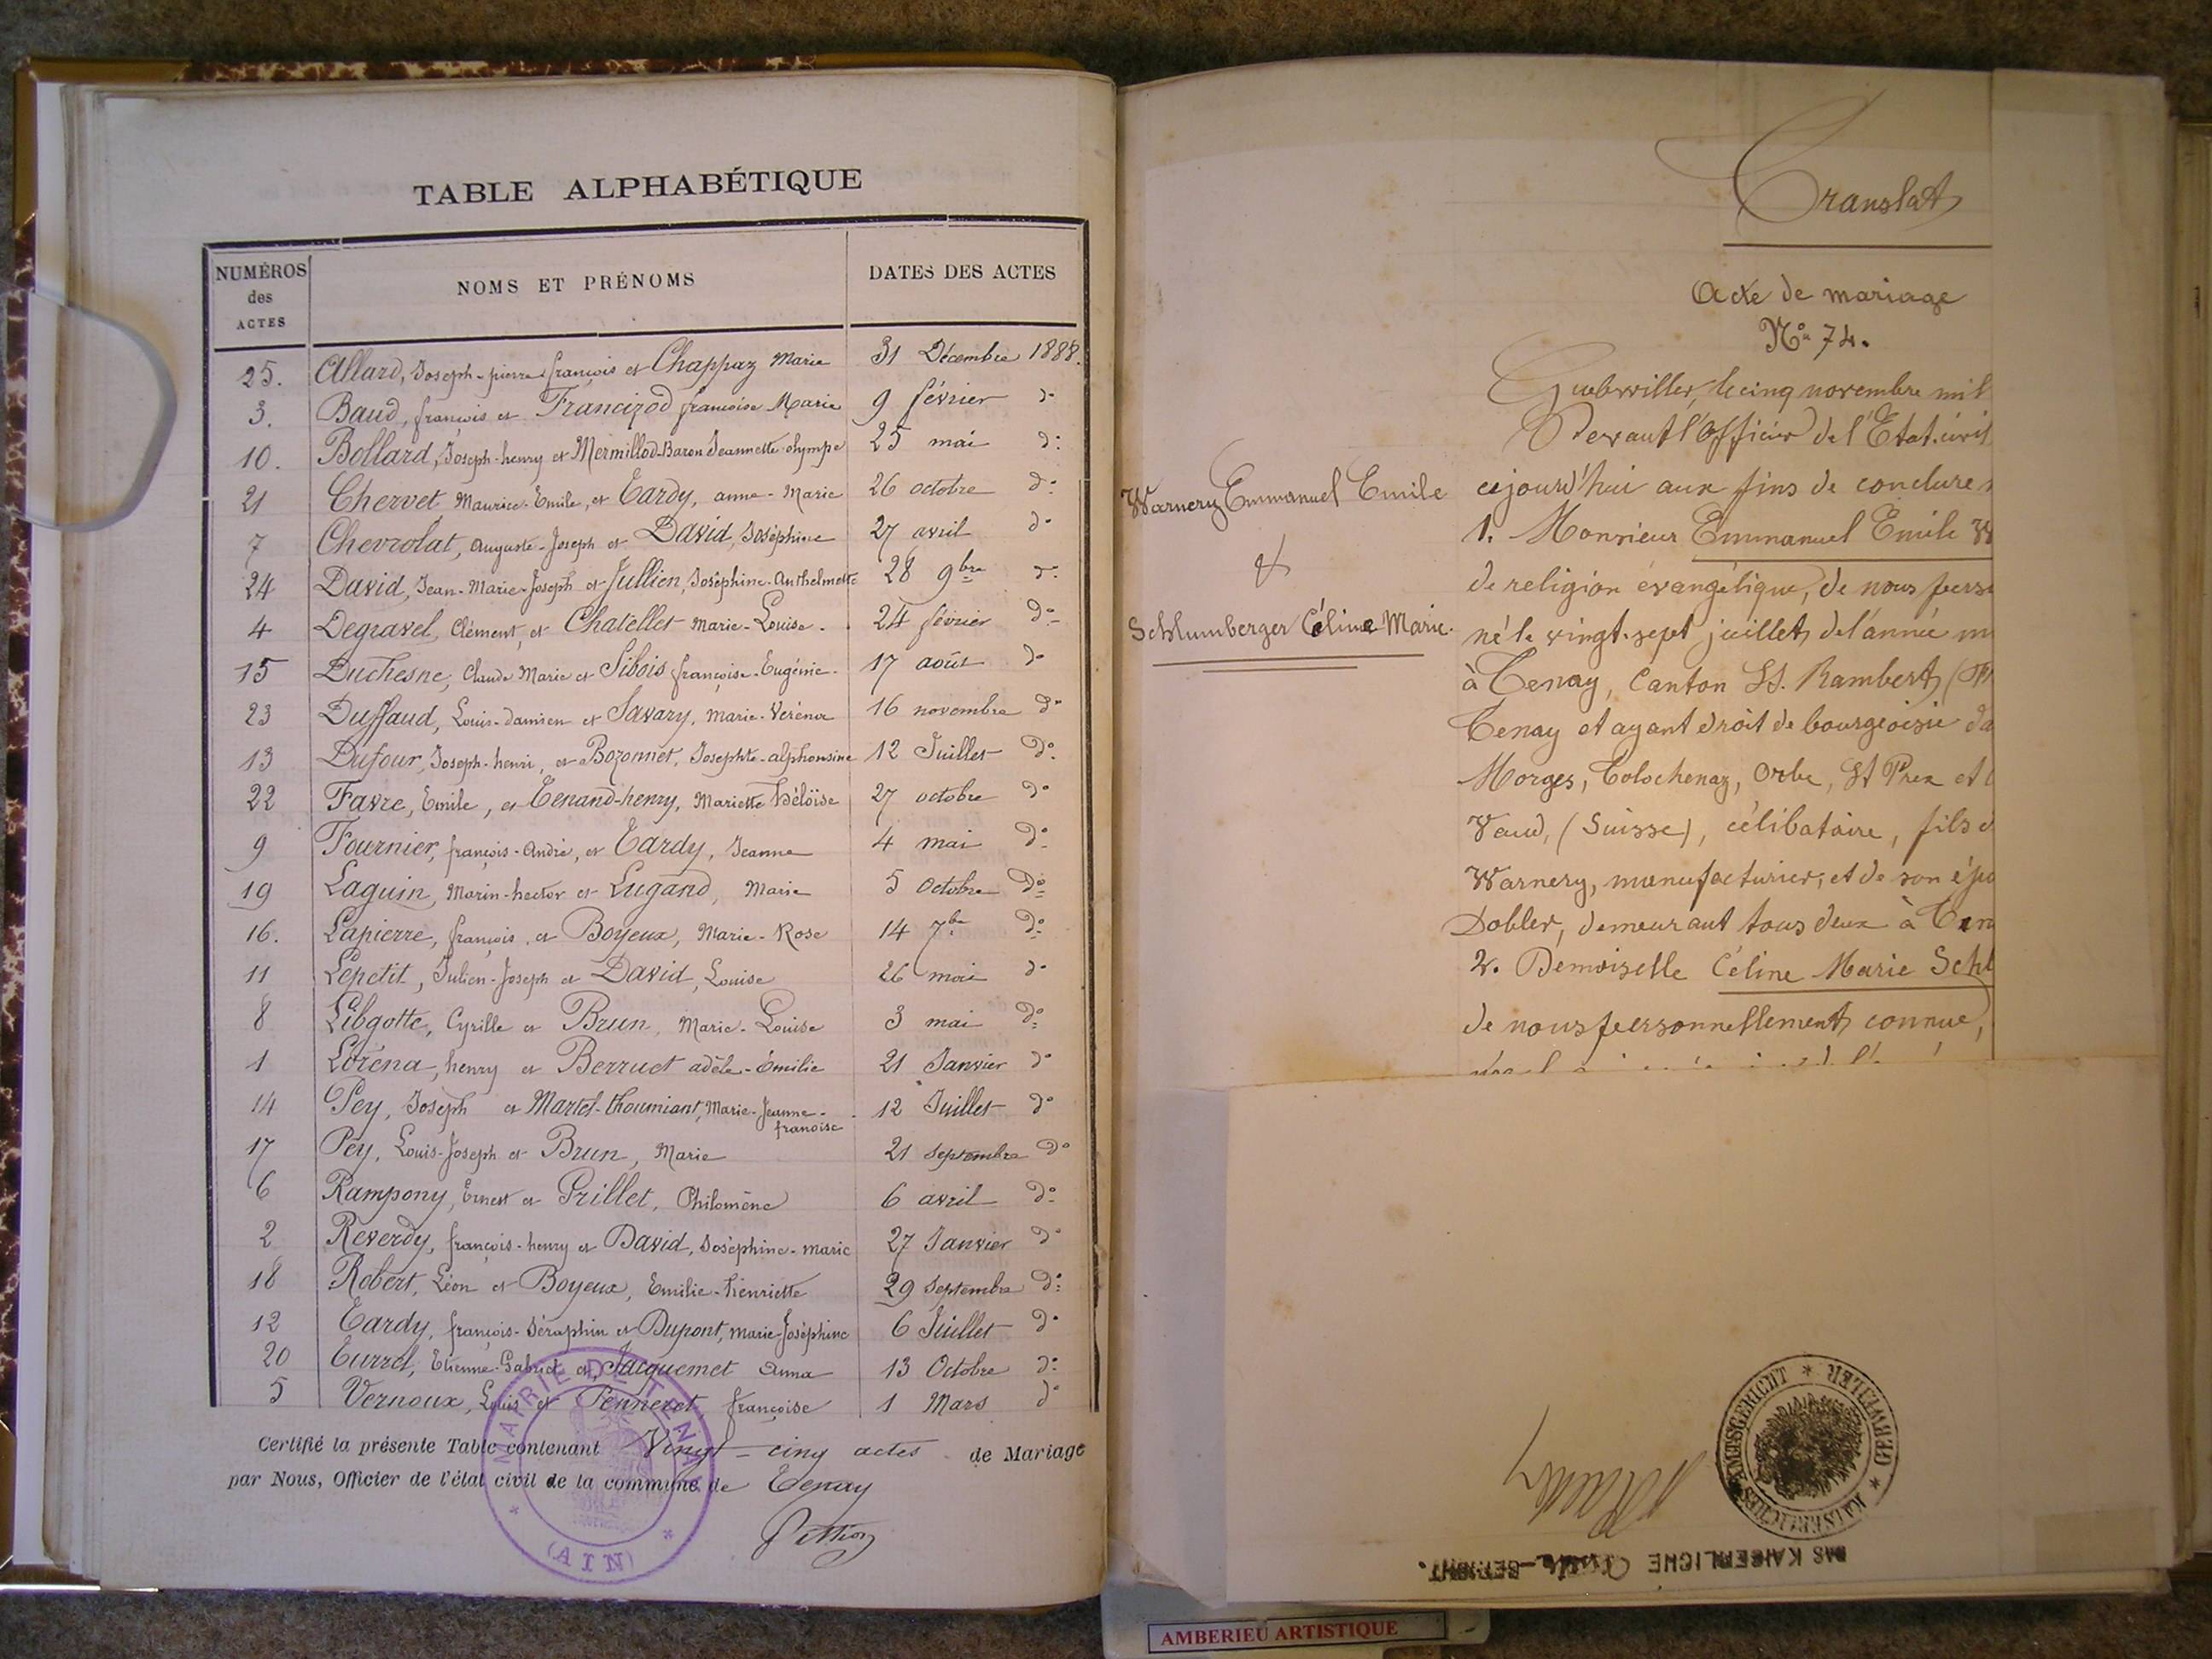 TABLE ALPHABÉTIQUE
NUMÉROS des ACTES
NOMS ET PRÉNOMS
DATES DES ACTES
25. Allard, Joseph-pierre françois et Chappaz Marie 31 Décembre 1888.
3. Baud, françois et Francizod françoise Marie 9 février do
10. Bollard, Joseph-henry et Mermillod-Baron Jeannette-olympe 25 mai do
21 Chervet Maurice-Emile, et Tardy, anne-Marie 26 octobre do
7 Chevrolat, Auguste-Joseph et David, Joséphine 27 avril do
24 David, Jean-Marie-Joseph et Jullien, Joséphine-Anthelmette 28 9bre do
4 Degravel, Clément, et Chatellet Marie-Louise. 24 février do
15 Duchesne, Claude Marie et Sibois françoise-Eugénie 17 août do
23 Duffaud, Louis-damien et Savary, Marie-Vérena 16 novembre do
13 Dufour, Joseph-henri, et Bozonnet, Josephte-alphonsine 12 Juillet do
22 Favre, Emile, et Tenand-henry, Mariette Héloïse 27 octobre do
9 Fournier, françois-André, et Tardy, Jeanne 4 mai do
19 Laguin, Marin-hector et Lugand, Marie 5 Octobre do
16. Lapierre, françois, et Boyeux, Marie-Rose 14 7bre do
11 Lepetit, Julien-Joseph et David, Louise 26 mai do
8 Libgotte, Cyrille et Brun, Marie-Louise 3 mai do
1 Loréna, henry et Berruet adèle-émilie 21 Janvier do
14 Pey, Joseph et Martel-thoumiant, Marie-Jeanne- 12 Juillet do
franoise
17 Pey, Louis-Joseph et Brun, Marie 21 septembre do
6 Rampony, Ernest et Grillet, Philomène 6 avril do
2 Reverdy, françois-henry et David, Joséphine-marie 27 Janvier do
18 Robert, Léon et Boyeux, Emilie-henriette 29 septembre do
12 Tardy, françois-Séraphin et Dupont, marie-Joséphine 6 Juillet do
20 Turrel, Etienne-Gabriel et Jacquemet Anna 13 Octobre do
5 Vernoux, Louis et Penneret françoise 1 Mars do
Certifié la présente Table contenant Vingt-cinq actes de Mariage
par Nous, Officier de l'état civil de la commune de Tenay
MAIRIE DE TENAY
(AIN)
Translat
Acte de mariage
No 74.
Guebwiller, le cinq novembre mil
Devant l'Officier de l'Etat civil
cejourd'hui aux fins de conclure
Warnery Emmanuel Emile
&
Schlumberger Céline Marie.
1. Monsieur Emmanuel Emile W
de religion évangélique, de nous perso
né le vingt-sept juillet de l'année m
à Tenay, Canton St. Rambert (Fr
Tenay et ayant droit de bourgeoisie da
Morges, Tolochenaz, Orbe, St Prex et
Vaud, (Suisse), célibataire, fils d
Warnery, manufacturier, et de son épo
Dobler, demeurant tous deux à Ten
2. Demoiselle Céline Marie Schl
de nous personnellement connue,
KAISERLICHES AMTSGERICHT * GEBWEILER *
DAS KAISERLICHE
AMBERIEU ARTISTIQUE